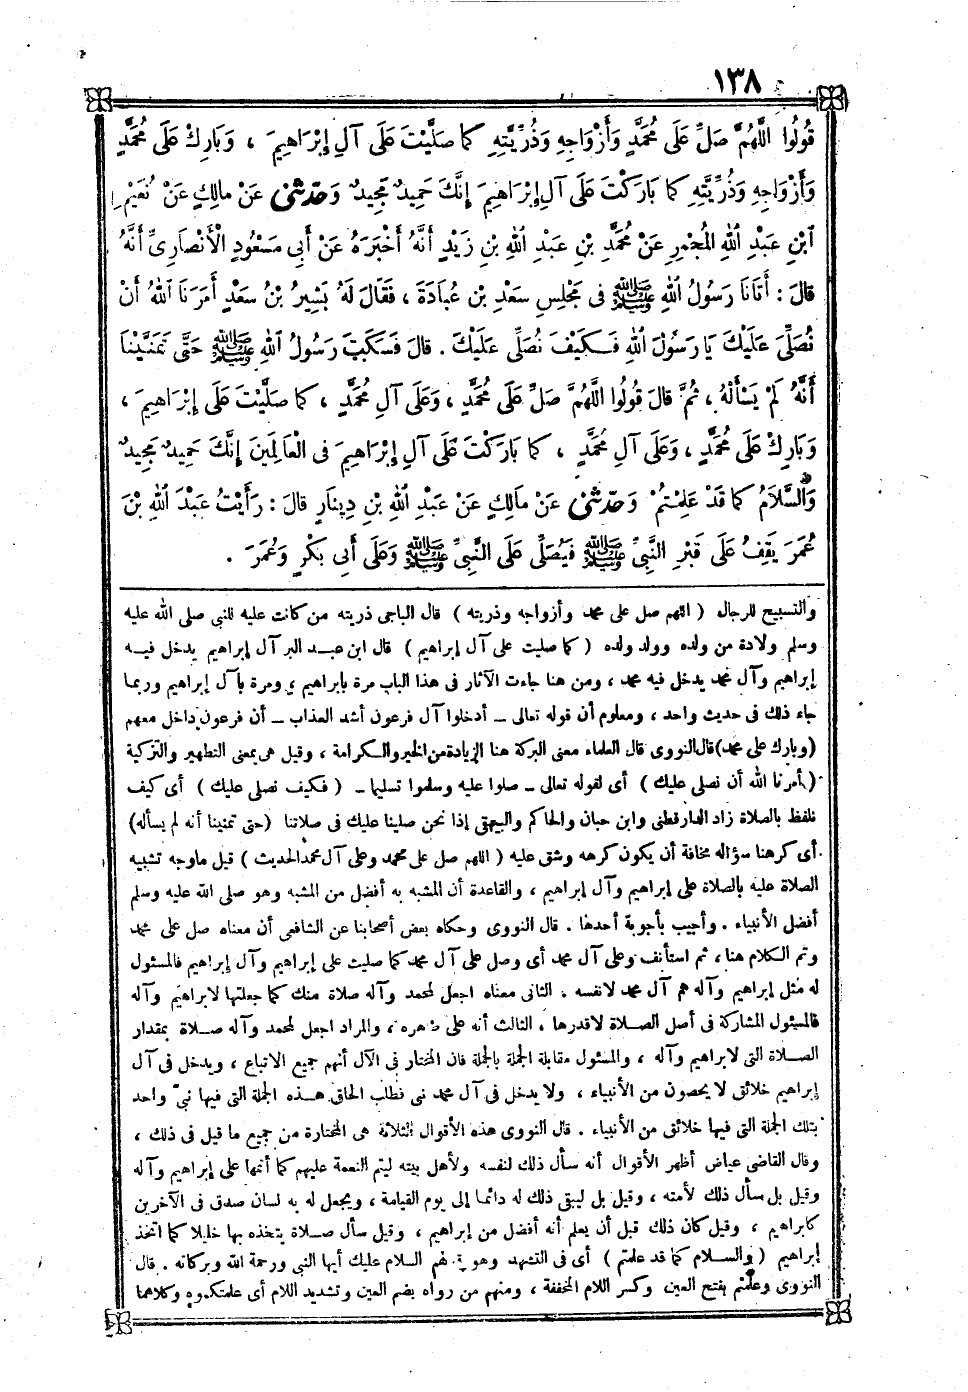 ١٣٨
قُولُوا اللَّهُمَّ صَلِّ عَلَى مُحَمَّدٍ وَأَزْوَاجِهِ وَذُرِّيَّتِهِ كَمَا صَلَّيْتَ عَلَى آلِ إِبْرَاهِيمَ ، وَبَارِكْ عَلَى مُحَمَّدٍ
وَأَزْوَاجِهِ وَذُرِّيَّتِهِ كَمَا بَارَكْتَ عَلَى آلِ إِبْرَاهِيمَ إِنَّكَ حَمِيدٌ مَجِيدٌ وَحَدَّثَنِي عَنْ مَالِكٍ عَنْ نُعَيْمِ
ابْنِ عَبْدِ اللهِ الْمُجْمِرِ عَنْ مُحَمَّدِ بْنِ عَبْدِ اللهِ بْنِ زَيْدٍ أَنَّهُ أَخْبَرَهُ عَنْ أَبِي مَسْعُودٍ الْأَنْصَارِيِّ أَنَّهُ
قَالَ : أَتَانَا رَسُولُ اللهِ ﷺ فِي مَجْلِسِ سَعْدِ بْنِ عُبَادَةَ ، فَقَالَ لَهُ بَشِيرُ بْنُ سَعْدٍ أَمَرَنَا اللهُ أَنْ
نُصَلِّيَ عَلَيْكَ يَا رَسُولَ اللهِ فَكَيْفَ نُصَلِّي عَلَيْكَ . قَالَ فَسَكَتَ رَسُولُ اللهِ ﷺ حَتَّى تَمَنَّيْنَا
أَنَّهُ لَمْ يَسْأَلْهُ ، ثُمَّ قَالَ قُولُوا اللَّهُمَّ صَلِّ عَلَى مُحَمَّدٍ ، وَعَلَى آلِ مُحَمَّدٍ ، كَمَا صَلَّيْتَ عَلَى إِبْرَاهِيمَ ،
وَبَارِكْ عَلَى مُحَمَّدٍ ، وَعَلَى آلِ مُحَمَّدٍ ، كَمَا بَارَكْتَ عَلَى آلِ إِبْرَاهِيمَ فِي الْعَالَمِينَ إِنَّكَ حَمِيدٌ مَجِيدٌ
وَالسَّلَامُ كَمَا قَدْ عَلِمْتُمْ وَحَدَّثَنِي عَنْ مَالِكٍ عَنْ عَبْدِ اللهِ بْنِ دِينَارٍ قَالَ : رَأَيْتُ عَبْدَ اللهِ بْنَ
عُمَرَ يَقِفُ عَلَى قَبْرِ النَّبِيِّ ﷺ فَيُصَلِّي عَلَى النَّبِيِّ ﷺ وَعَلَى أَبِي بَكْرٍ وَعُمَرَ .
والتسبيح للرجال ( اللهم صل على محمد وأزواجه وذريته ) قال الباجى ذريته من كانت عليه للنبى صلى الله عليه
وسلم ولادة من ولده وولد ولده ( كما صليت على آل إبراهيم ) قال ابن عبد البر آل إبراهيم يدخل فيه
إبراهيم وآل محمد يدخل فيه محمد ، ومن هنا جاءت الآثار فى هذا الباب مرة بابراهيم ، ومرة بآل إبراهيم وربما
جاء ذلك فى حديث واحد ، ومعلوم أن قوله تعالى ـ أدخلوا آل فرعون أشد العذاب ـ أن فرعون داخل معهم
(وبارك على محمد) قال النووى قال العلماء معنى البركة هنا الزيادة من الخير والكرامة ، وقيل هى بمعنى التطهير والتزكية
(أمرنا الله أن نصلى عليك ) أى لقوله تعالى ـ صلوا عليه وسلموا تسليما ـ ( فكيف نصلى عليك ) أى كيف
نلفظ بالصلاة زاد الدارقطنى وابن حبان والحاكم والبيهقى إذا نحن صلينا عليك فى صلاتنا (حتى تمنينا أنه لم يسأله)
أى كرهنا سؤاله مخافة أن يكون كرهه وشق عليه ( اللهم صل على محمد وعلى آل محمد الحديث ) قيل ما وجه تشبيه
الصلاة عليه بالصلاة على إبراهيم وآل إبراهيم ، والقاعدة أن المشبه به أفضل من المشبه وهو صلى الله عليه وسلم
أفضل الأنبياء . وأجيب بأجوبة أحدها . قال النووى وحكاه بعض أصحابنا عن الشافعى أن معناه صل على محمد
وتم الكلام هنا ، ثم استأنف وعلى آل محمد أى وصل على آل محمد كما صليت على إبراهيم وآل إبراهيم فالمسئول
له مثل إبراهيم وآله هم آل محمد لا نفسه . الثانى معناه اجعل لمحمد وآله صلاة منك كما جعلتها لابراهيم وآله
فالمسئول المشاركة فى أصل الصلاة لا قدرها ، الثالث أنه على ظاهره ، والمراد اجعل لمحمد وآله صلاة بمقدار
الصلاة التى لابراهيم وآله ، والمسئول مقابلة الجملة بالجملة فان المختار فى الآل أنهم جميع الاتباع ، ويدخل فى آل
إبراهيم خلائق لا يحصون من الأنبياء ، ولا يدخل فى آل محمد نبى فطلب الحاق هذه الجملة التى فيها نبى واحد
بتلك الجملة التى فيها خلائق من الأنبياء . قال النووى هذه الأقوال الثلاثة هى المختارة من جميع ما قيل فى ذلك ،
وقال القاضى عياض أظهر الأقوال أنه سأل ذلك لنفسه ولأهل بيته ليتم النعمة عليهم كما أتمها على إبراهيم وآله
وقيل بل سأل ذلك لأمته ، وقيل بل ليبقى ذلك له دائما إلى يوم القيامة ، ويجعل له به لسان صدق فى الآخرين
كابراهيم ، وقيل كان ذلك قبل أن يعلم أنه أفضل من إبراهيم ، وقيل سأل صلاة يتخذه بها خليلا كما اتخذ
إبراهيم ( والسلام كما قد علمتم ) أى فى التشهد وهو قولهم السلام عليك أيها النبى ورحمة الله وبركاته . قال
النووى وعلمتم بفتح العين وكسر اللام المخففة ، ومنهم من رواه بضم العين وتشديد اللام أى علمتكموه وكلاهما